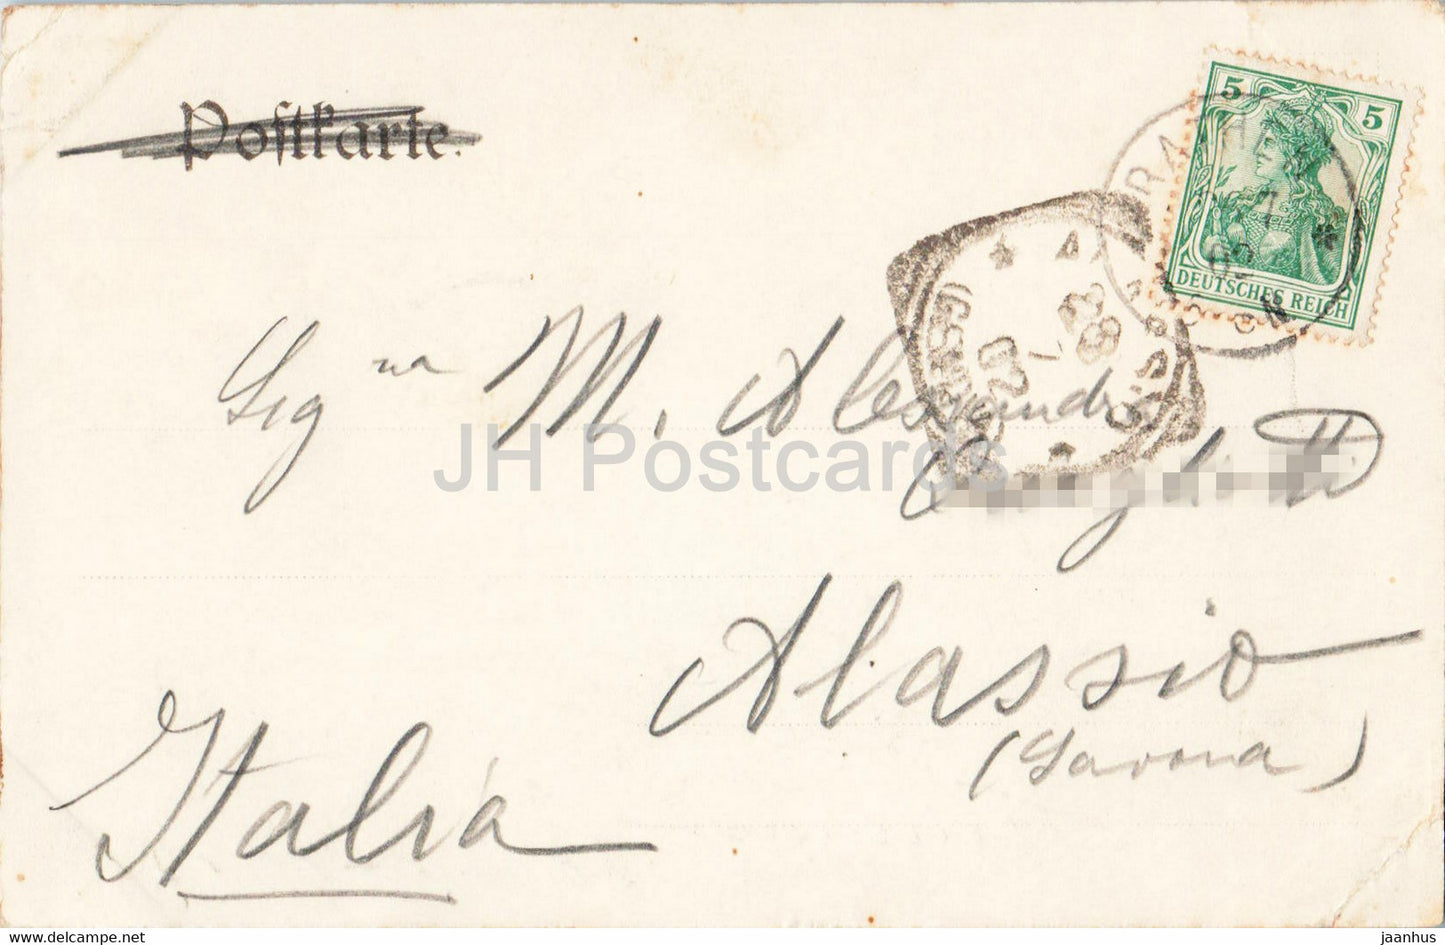 Postkarte.
5 5
DEUTSCHES REICH
28
Sig na M. Alessandri
JH Postcards
Alassio
(Savona)
Italia
www.delcampe.net
jaanhus